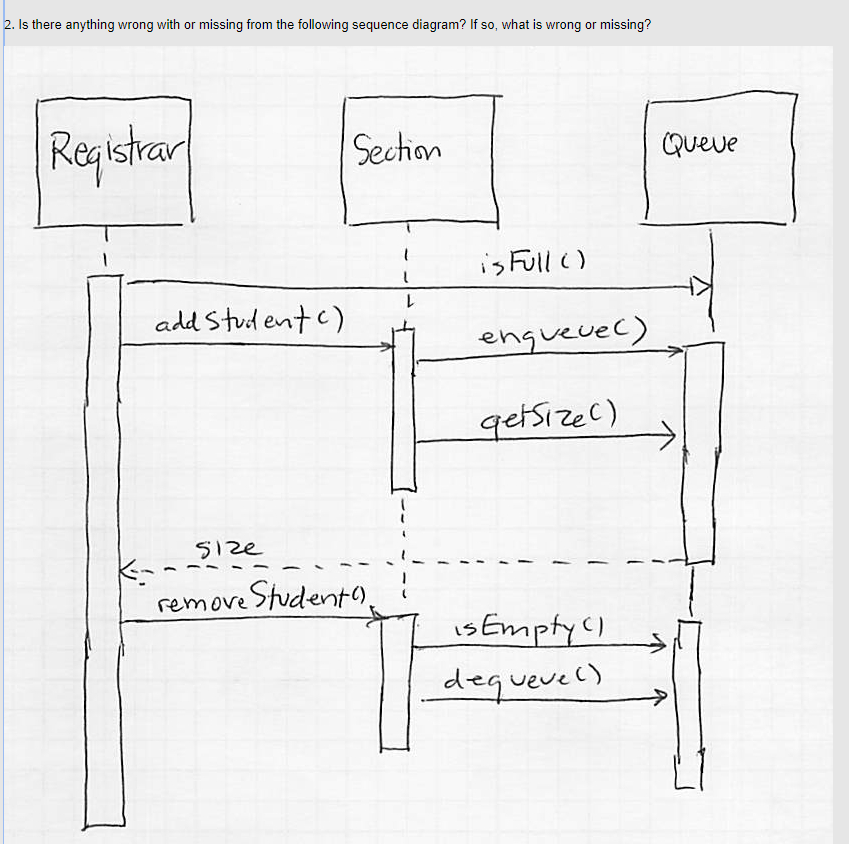 2. Is there anything wrong with or missing from the following sequence diagram? If so, what is wrong or missing?
Registrar
Section
Queue
isFull()
addStudent()
enqueue()
getSize()
size
removeStudent()
isEmpty()
dequeue()